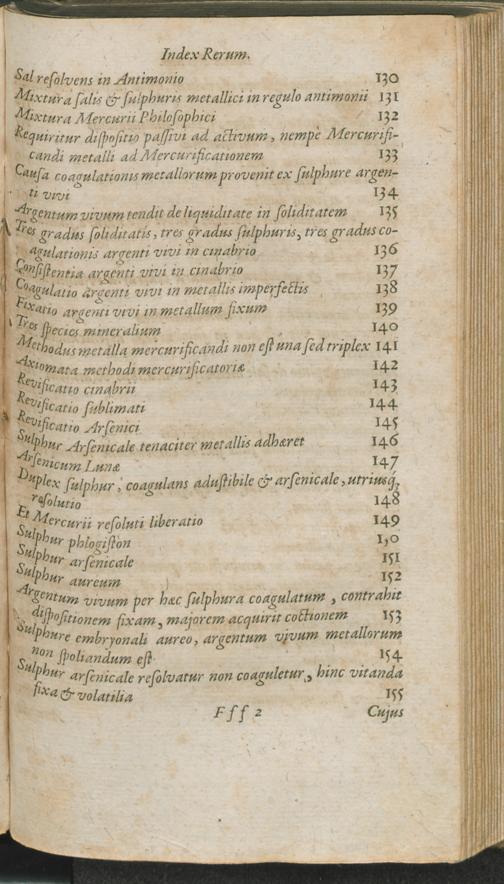 Index Rerum.
Sal resolvens in Antimonio 130
Mixtura salis & sulphuris metallici in regulo antimonii 131
Mixtura Mercurii Philosophici 132
Requiritur dispositio passivi ad activum, nempe Mercurifi-
candi metalli ad Mercurificationem 133
Causa coagulationis metallorum provenit ex sulphure argen-
ti vivi 134
Argentum vivum tendit de liquiditate in soliditatem 135
Tres gradus soliditatis, tres gradus sulphuris, tres gradus co-
agulationis argenti vivi in cinabrio 136
Consistentia argenti vivi in cinabrio 137
Coagulatio argenti vivi in metallis imperfectis 138
Fixatio argenti vivi in metallum fixum 139
Tres species mineralium 140
Methodus metalla mercurificandi non est una sed triplex 141
Axiomata methodi mercurificatoriæ 142
Revificatio cinabrii 143
Revificatio sublimati 144
Revificatio Arsenici 145
Sulphur Arsenicale tenaciter metallis adhæret 146
Arsenicum Lunæ 147
Duplex sulphur, coagulans adustibile & arsenicale, utriusq;
resolutio 148
Et Mercurii resoluti liberatio 149
Sulphur phlogiston 1,0
Sulphur arsenicale 151
Sulphur aureum 152
Argentum vivum per hæc sulphura coagulatum, contrahit
dispositionem fixam, majorem acquirit coctionem 153
Sulphure embryonali aureo, argentum vivum metallorum
non spoliandum est 154
Sulphur arsenicale resolvatur non coaguletur, hinc vitanda
fixa & volatilia 155
Fff 2 Cujus